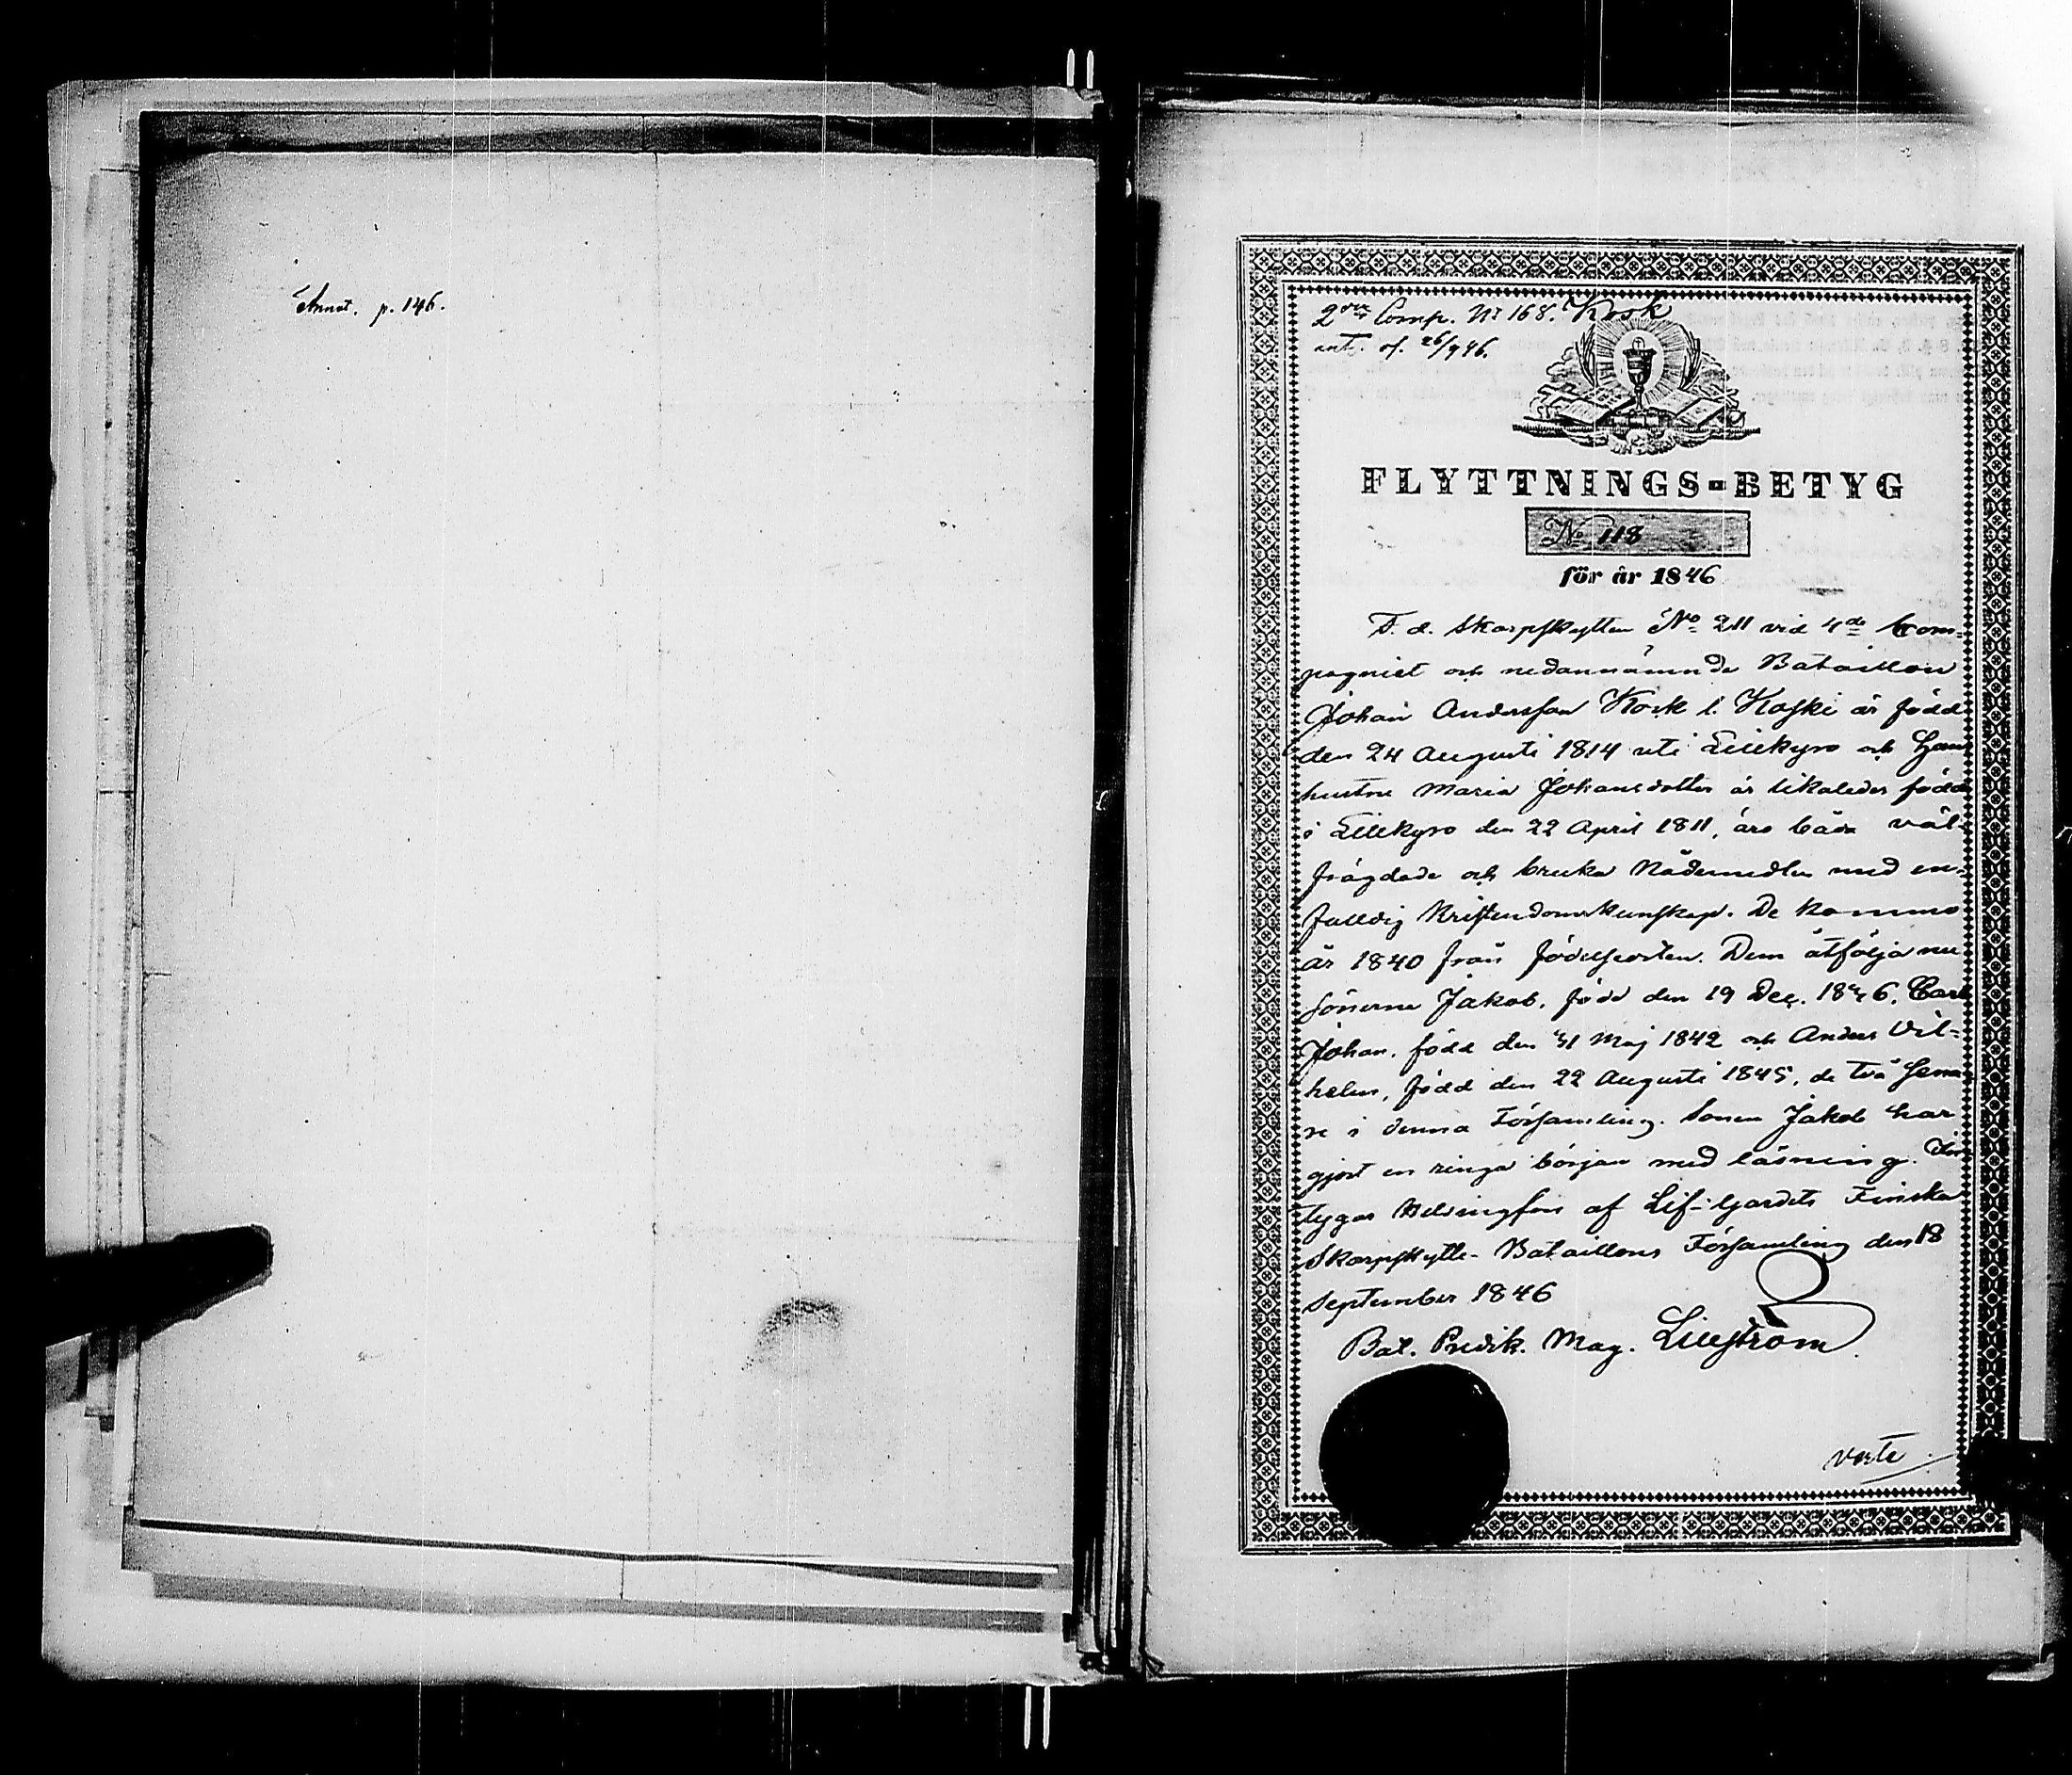 Annot. p. 146.
2dra Comp. No 168. Kosk
ant. af. 26/9 46.
FLYTTNINGS-BETYG
No 118
för år 1846
F. d. Skarpskytten No 211 vid 4de Com-
pagniet och nedannämnde Bataillon
Johan Andersson Kosk l. Koski är född
den 24 Augusti 1814 uti Lillkyro och Hans
hustru Maria Johansdotter är likaledes född
i Lillkyro den 22 April 1811, äro båda väl-
frägdade och bruka Nådemedlen med en-
falldig Kristendomskunskap. De kommo
år 1840 från födelseorten. Dem åtfölja nu
sönerna Jakob, född den 19 Dec. 1836, Carl
Johan, född den 31 Maj 1842 och Anders Vil-
helm, född den 22 Augusti 1845, de två sena-
re i denna Församling. Sonen Jakob har
gjort en ringa början med läsning.
tygar Helsingfors af Lif-Gardets Finska
Skarpskytte-Bataillons Församling den 18
September 1846
Bat. Predik. Mag. Lillström.
verte